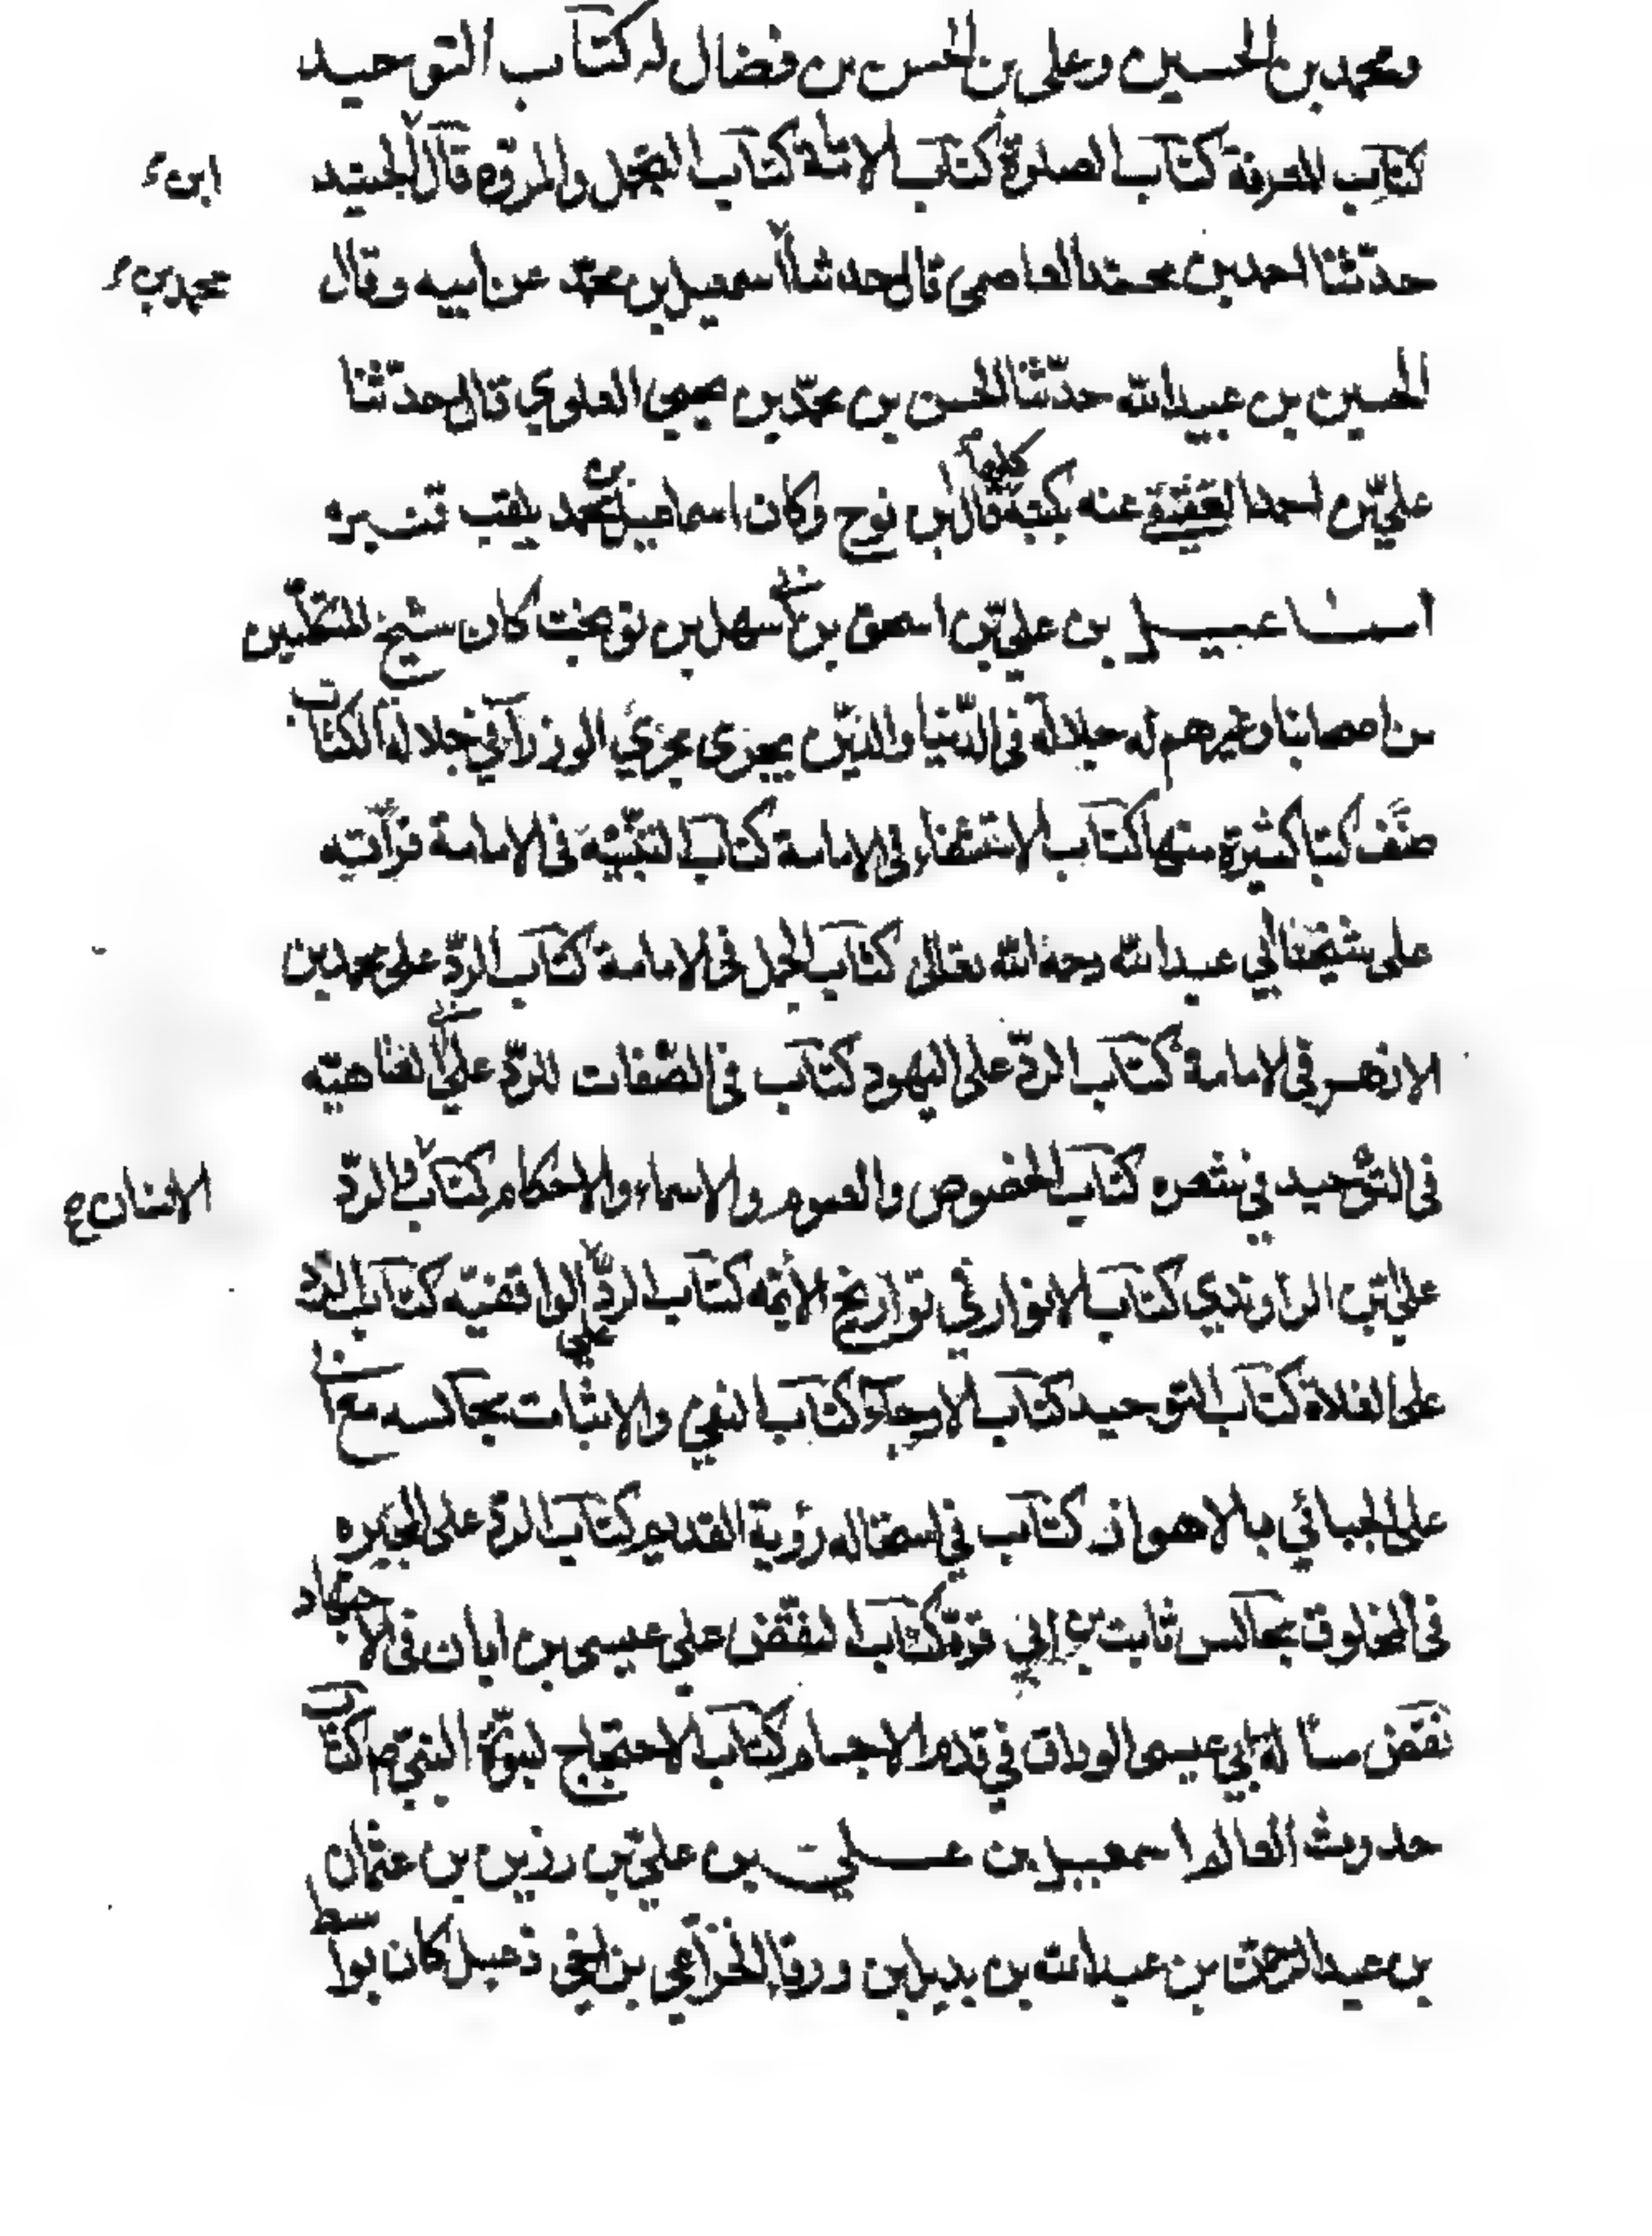 ومحمد بن الحسين وعلى بن الحسن بن فضال له كتاب التوحيد
كتاب المعرفة كتاب الصلوة كتاب الامامة كتاب التجمل والمروه قال الجنيد
ابن
حدثنا احمد بن محمد العاصمى قال حدثنا اسمعيل بن محمد عن ابيه وقال
محمد بن
الحسين بن عبيد الله حدثنا الحسن بن محمد بن يحيى العلوي قال حدثنا
علي بن احمد العقيقي عنه بكتبه كلها قال ابن نوح وكان اسماعيل بن محمد يلقب قنبره
اسماعيل بن علي بن اسحق بن ابي سهل بن نوبخت كان شيخ المتكلمين
من اصحابنا وغيرهم له جلالة فى الدنيا والدين يجرى مجري الوزرآء في جلالة الكتاب
صنف كتبا كثيرة منها كتاب الاستيفاء فى الامامة كتاب التنبيه فى الامامة قرأته
على شيخنا أبي عبد الله رحمه الله تعالى كتاب الجمل فى الامامة كتاب الردّ على محمد بن
الازهر فى الامامة كتاب الردّ على اليهود كتاب فى الصّفات للردّ على أبي العتاهيّه
فى التوحيد في شعره كتاب الخصوص والعموم والاسماء والاحكام كتاب في الردّ
الانسان ع
علي بن الراوندي كتاب الانوار في تواريخ الأئمه كتاب الردّ على الواقفيّه كتاب الردّ
على الغلاة كتاب التوحيد كتاب الارجآء كتاب النفي والاثبات مجالسه مع أبي
على الجبائي بالاهواز كتاب في استحاله رؤية القديم كتاب الردّ على المجبره
فى المخلوق مجالس ثابت بن ابي قرة كتاب النقض على عيسى بن ابان فى الاجتهاد
نقض مسألة أبي عيسى الوراق في قدم الاجسام كتاب الاحتجاج لنبوّة النبيّ ص كتاب
حدوث العالم اسمعيل بن علي بن علي بن رزين بن عثمان
بن عبد الرحمن بن عبد الله بن بديل بن ورقا الخزاعي بن اخي دعبل كان بواسط